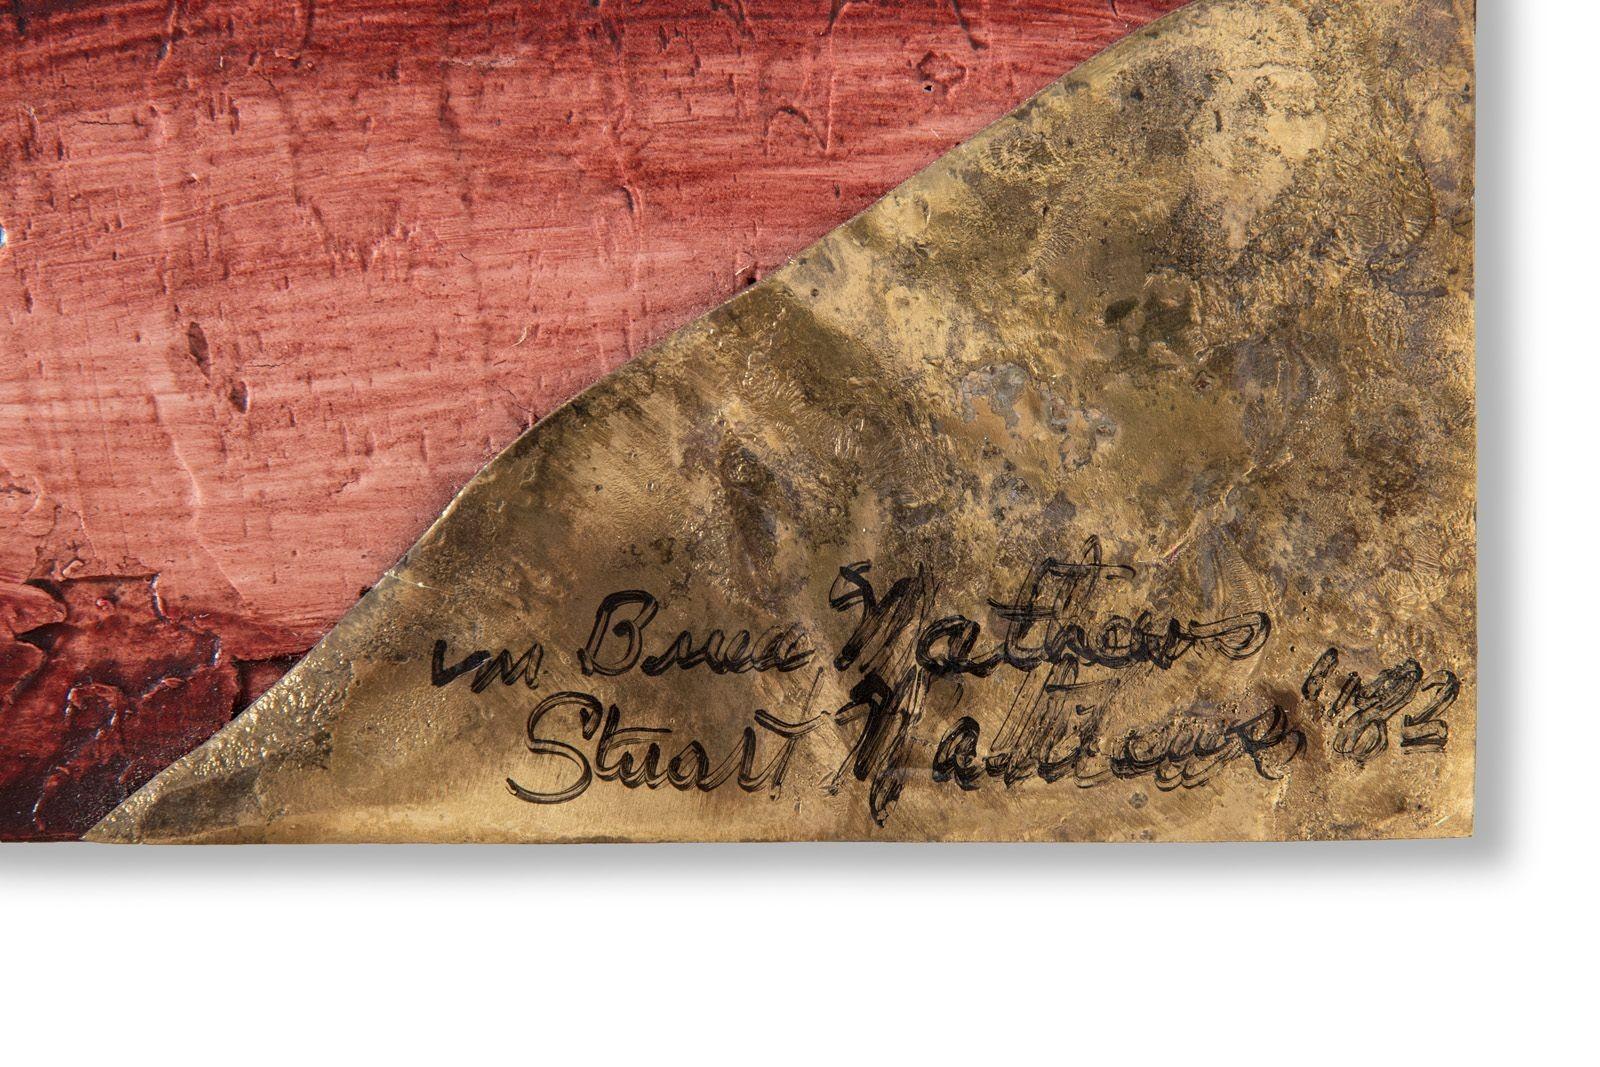 Wm Bruce Mathews
Stuart Mathews, 1982